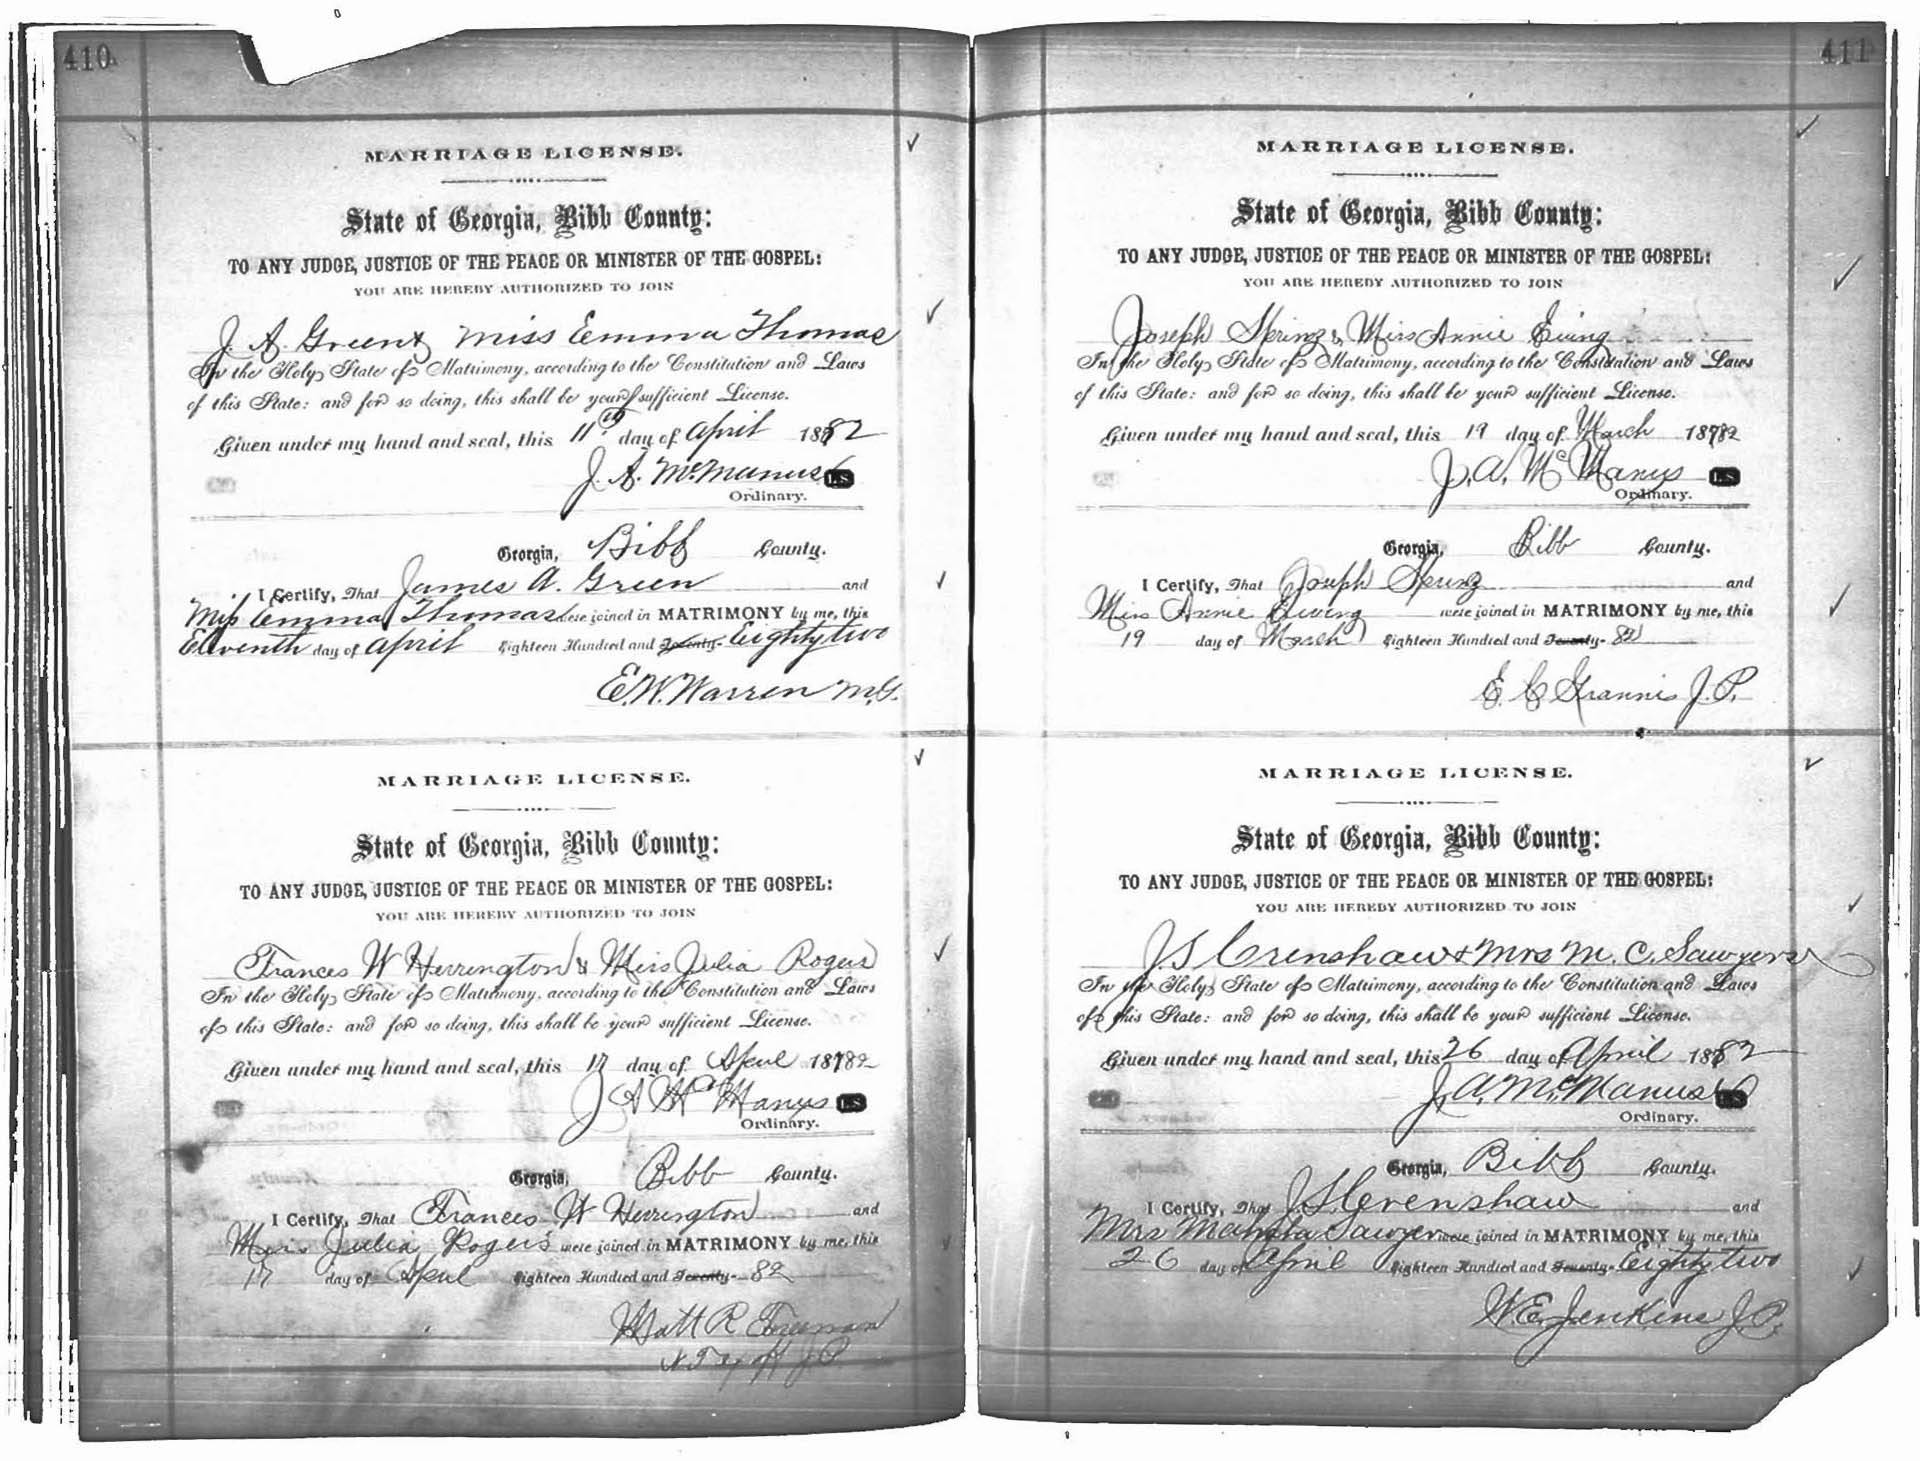 410
MARRIAGE LICENSE.
State of Georgia, Bibb County:
TO ANY JUDGE, JUSTICE OF THE PEACE OR MINISTER OF THE GOSPEL:
YOU ARE HEREBY AUTHORIZED TO JOIN
J. A. Green & Miss Emma Thomas
In the Holy State of Matrimony, according to the Constitution and Laws
of this State: and for so doing, this shall be your sufficient License.
Given under my hand and seal, this 11th day of April 1882
J. A. McManus L.S.
Ordinary.
Georgia, Bibb County.
I Certify, That James A. Green and
Miss Emma Thomas were joined in MATRIMONY by me, this
Eleventh day of April Eighteen Hundred and Seventy- Eighty two
E. W. Warren M.G.
MARRIAGE LICENSE.
State of Georgia, Bibb County:
TO ANY JUDGE, JUSTICE OF THE PEACE OR MINISTER OF THE GOSPEL:
YOU ARE HEREBY AUTHORIZED TO JOIN
Frances W Herrington & Miss Julia Rogers
In the Holy State of Matrimony, according to the Constitution and Laws
of this State: and for so doing, this shall be your sufficient License.
Given under my hand and seal, this 17 day of April 18782
J A McManus L.S.
Ordinary.
Georgia, Bibb County.
I Certify, That Frances W Herrington and
Miss Julia Rogers were joined in MATRIMONY by me, this
17 day of April Eighteen Hundred and Seventy- 82
Matt R Freeman
J P
411
MARRIAGE LICENSE.
State of Georgia, Bibb County:
TO ANY JUDGE, JUSTICE OF THE PEACE OR MINISTER OF THE GOSPEL:
YOU ARE HEREBY AUTHORIZED TO JOIN
Joseph & Miss Annie Ewing
In the Holy State of Matrimony, according to the Constitution and Laws
of this State: and for so doing, this shall be your sufficient License.
Given under my hand and seal, this 19 day of March 18782
J. A. McManus L.S.
Ordinary.
Georgia, Bibb County.
I Certify, That Joseph and
Miss Annie Ewing were joined in MATRIMONY by me, this
19 day of March Eighteen Hundred and Seventy- 82
E. C. Grannis J. P.
MARRIAGE LICENSE.
State of Georgia, Bibb County:
TO ANY JUDGE, JUSTICE OF THE PEACE OR MINISTER OF THE GOSPEL:
YOU ARE HEREBY AUTHORIZED TO JOIN
J. S. Crenshaw & Mrs M. C. Sawyers
In the Holy State of Matrimony, according to the Constitution and Laws
of this State: and for so doing, this shall be your sufficient License.
Given under my hand and seal, this 26 day of April 1882
J. A. McManus L.S.
Ordinary.
Georgia, Bibb County.
I Certify, That J. S. Crenshaw and
Mrs Sawyer were joined in MATRIMONY by me, this
26 day of April Eighteen Hundred and Seventy- Eighty two
W. E. Jenkins J. P.